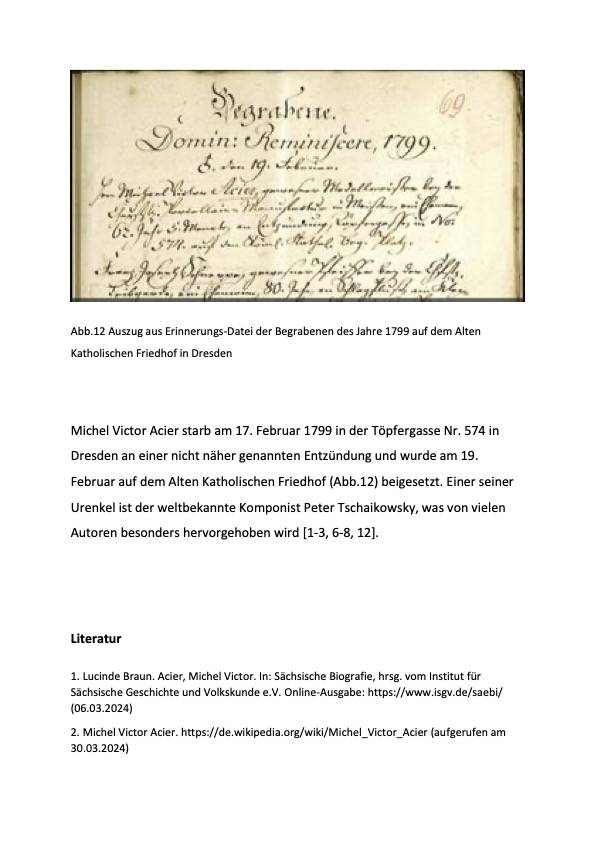 Begrabene.
69.
Domin: Reminiscere, 1799.
den 19. Februar.
Michael Victor Acier, gewesener Modellmeister bey der
Porcellain-Manufactur in Meißen, ein Ehemann,
62. Jahr 5. Monat, an Entzündung, Töpfergasse, in No:
574. auf den
Franz Joseph gewesener bey der
ein Ehemann, 80. Jahr, an Schlagfluß,
Abb.12 Auszug aus Erinnerungs-Datei der Begrabenen des Jahre 1799 auf dem Alten
Katholischen Friedhof in Dresden
Michel Victor Acier starb am 17. Februar 1799 in der Töpfergasse Nr. 574 in
Dresden an einer nicht näher genannten Entzündung und wurde am 19.
Februar auf dem Alten Katholischen Friedhof (Abb.12) beigesetzt. Einer seiner
Urenkel ist der weltbekannte Komponist Peter Tschaikowsky, was von vielen
Autoren besonders hervorgehoben wird [1-3, 6-8, 12].
Literatur
1. Lucinde Braun. Acier, Michel Victor. In: Sächsische Biografie, hrsg. vom Institut für
Sächsische Geschichte und Volkskunde e.V. Online-Ausgabe: https://www.isgv.de/saebi/
(06.03.2024)
2. Michel Victor Acier. https://de.wikipedia.org/wiki/Michel_Victor_Acier (aufgerufen am
30.03.2024)